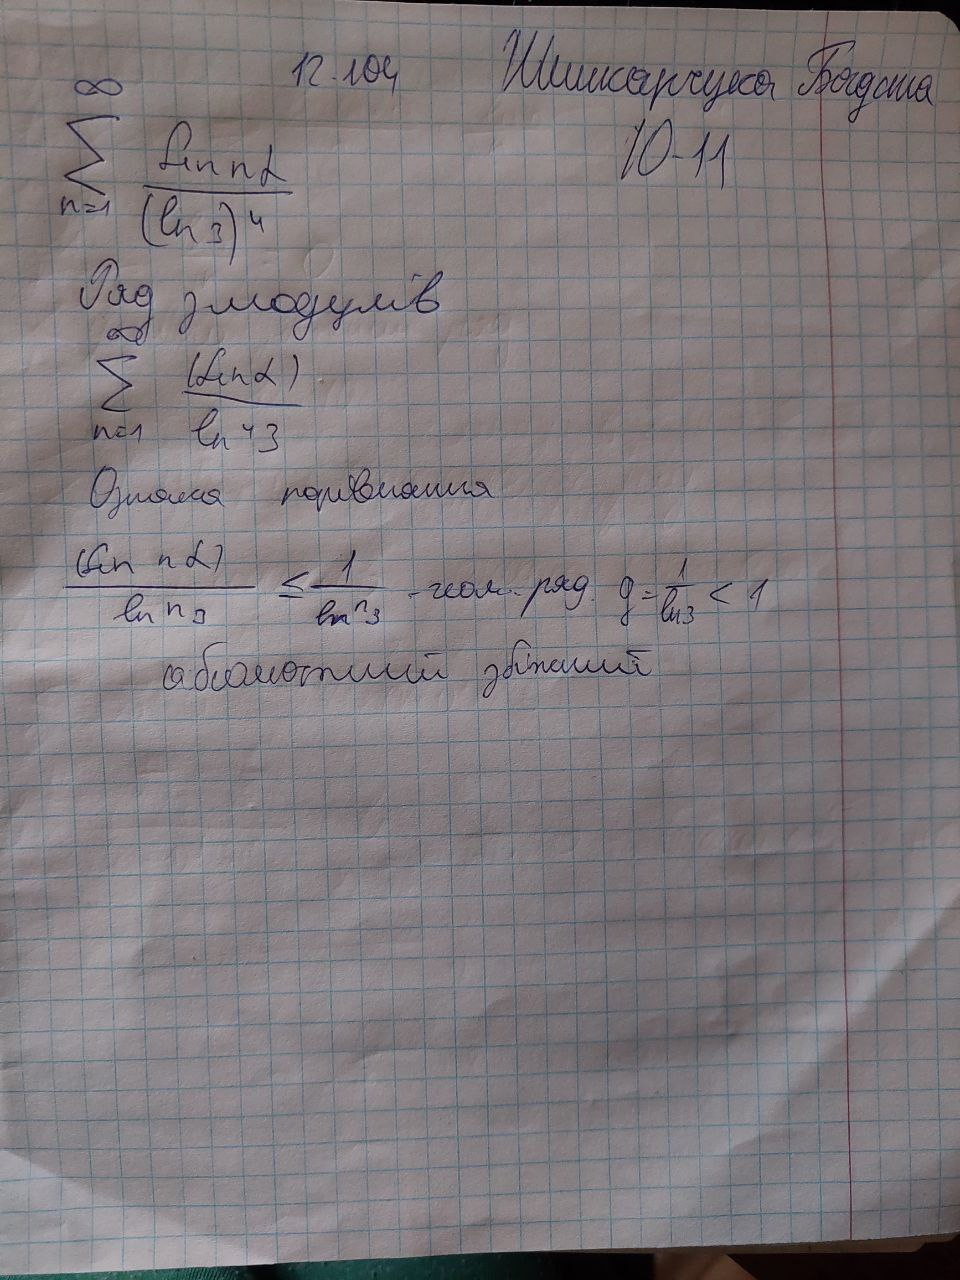 12.104 Шишкарчука Богдана
10-11
∞
∑ sin nα
n=1 (ln 3)^4
Ряд з модулів
∞
∑ (sin α)
n=1 ln^4 3
Ознака порівняння
(sin n α) / ln^n 3 ≤ 1 / ln^n 3 - геом. ряд. g = 1/ln3 < 1
абсолютний збіжний